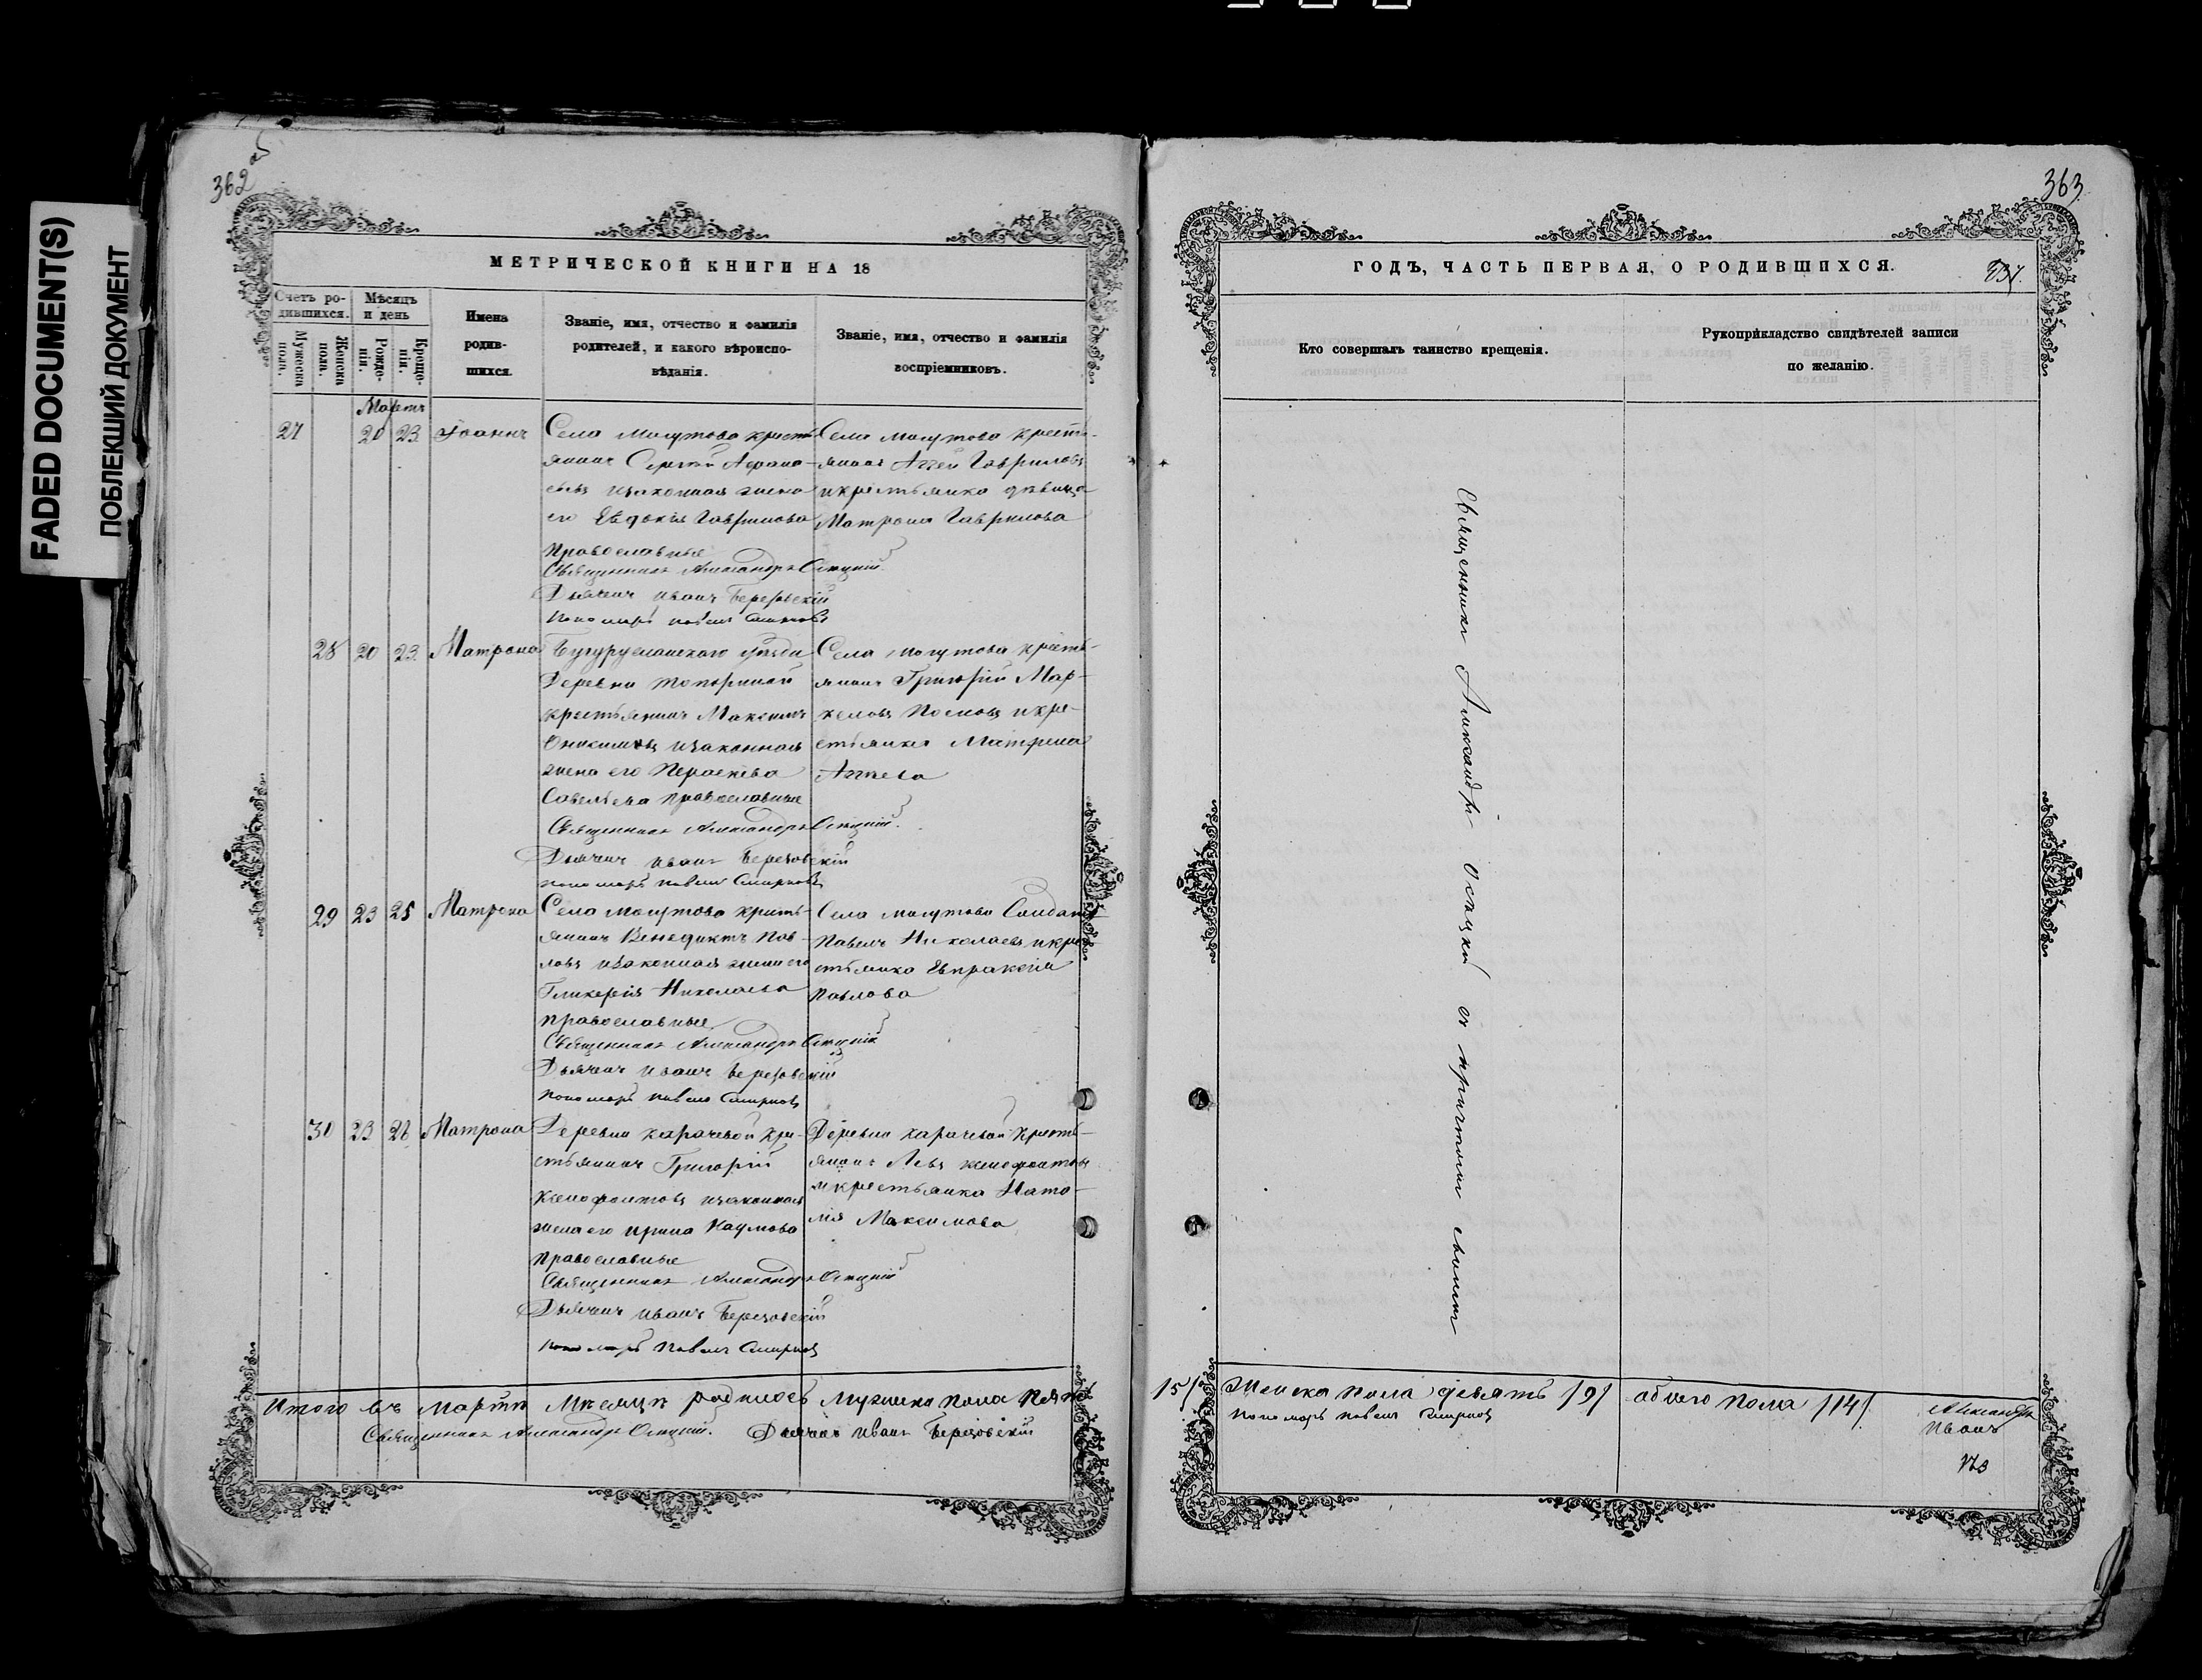 FADED DOCUMENT(S)
ПОБЛЕКШИЙ ДОКУМЕНТ
362
МЕТРИЧЕСКОЙ КНИГИ НА 18
Счетъ ро-
дившихся.
Мѣсяцъ
и день
Мужеска
пола.
Женска
пола.
Рожде-
нія.
Креще-
нія.
Имена
родив-
шихся.
Званіе, имя, отчество и фамилія
родителей, и какого вѣроиспо-
вѣданія.
Званіе, имя, отчество и фамилія
воспріемниковъ.
Мартъ
27 20 23 Іоаннъ
Села Могутова кресть-
янинъ Сергѣй Афана-
сьевъ изаконная жена
его Евдокія Гаврилова
православные
Священникъ Александръ Осецкій
Дьячокъ Иванъ Березовскій
пономарь Павелъ Смирновъ
Села Могутова кресть-
янинъ Аггей Гавриловъ
икрестьянка дѣвица
Матрона Гаврилова
28 20 23 Матрона
Бугурусланскаго уѣзда
Деревни Топориной
крестьянинъ Максимъ
Онисимовъ изаконная
жена его Параскева
Савельева православные
Священникъ Александръ Осецкій
Дьячокъ Иванъ Березовскій
пономарь Павелъ Смирновъ
Села Могутова кресть-
янинъ Григорій Мар-
келовъ икре-
стьянка Матрена
Аггеева
29 23 25 Матрона
Села Могутова кресть-
янинъ Венедиктъ Пав-
ловъ изаконная жена его
Гликерія Николаева
православные
Священникъ Александръ Осецкій
Дьячокъ Иванъ Березовскій
пономарь Павелъ Смирновъ
Села Могутова Солдатъ
Павелъ Николаевъ икре-
стьянка Евпраксія
Павлова
30 23 26 Матрона
Деревни Карачевой кре-
стьянинъ Григорій
Ксенофонтовъ изаконная
жена его Ирина Наумова
православные
Священникъ Александръ Осецкій
Дьячокъ Иванъ Березовскій
пономарь Павелъ Смирновъ
Деревни Карачевой кресть-
янинъ Левъ Ксенофонтовъ
икрестьянка Ната-
лія Максимова
Итого въ Мартѣ Мѣсяцѣ родилось Мужеска пола пять
Священникъ Александръ Осецкій. Дьячокъ Иванъ Березовскій
363
ГОДЪ, ЧАСТЬ ПЕРВАЯ, О РОДИВШИХСЯ.
Кто совершалъ таинство крещенія.
Рукоприкладство свидѣтелей записи
по желанію.
Священникъ Александръ Осецкій съ причтомъ своимъ
/5/ Женска пола девять /9/ обоего пола /14/
пономарь Павелъ Смирновъ
Александръ
Иванъ